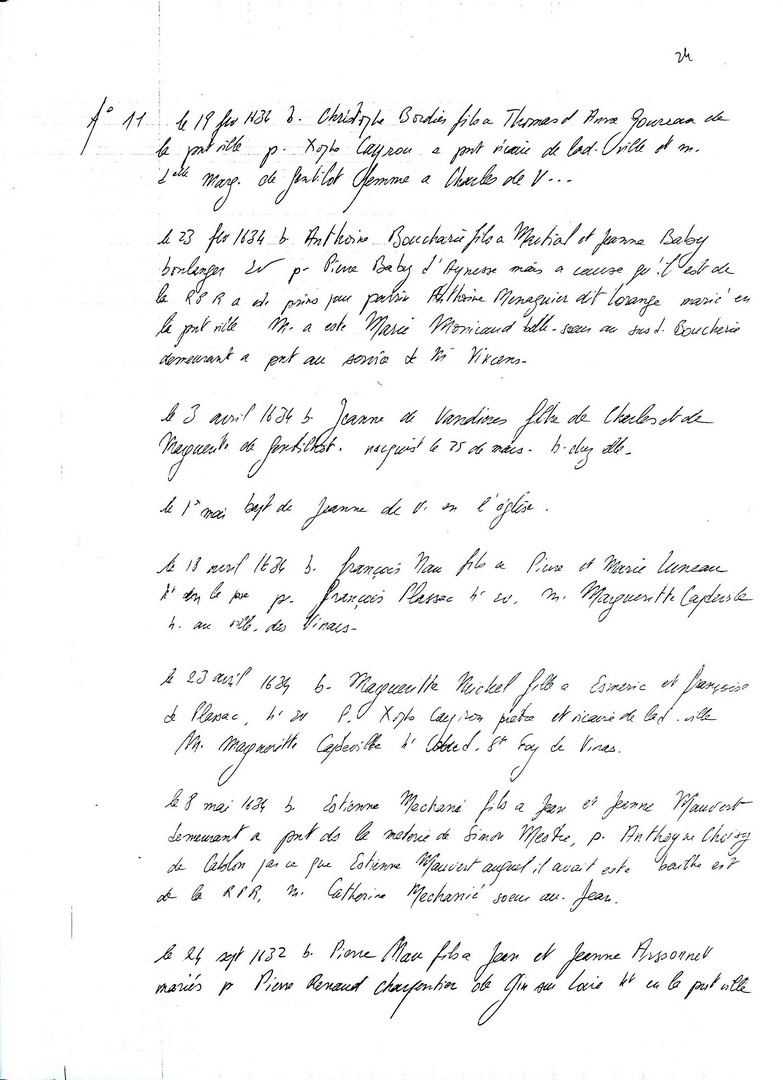 24
f° 11 le 19 fev 1634 b. Christophe Bordier fils a Thomas et Anne Goureau de
la pnt ville p. Xophe Cayrou a pnt vicaire de lad. ville et m.
delle Marg. de Gentilot femme a Charles de V...
le 23 fev 1634 b Anthoine Boucharie fils a Martial et Jeanne Baby
boulanger p- Pierre Baby d'Aynesse mais a cause qu'il est de
la RPR a este prins pour parrin Anthoine Menaguier dit lorange marié en
la pnt ville M. a este Marie Monicaud belle-soeur au susd. Boucherie
demeurant a pnt au service de Mr Vincens-
le 3 avril 1634 b Jeanne de Vandieres fille de Charles et de
Marguerite de Gentillot. nasquist le 25 de mars- b. chez elle-
le 1° mai bapt de Jeanne de V. en l'église.
le 18 avril 1634 b. françois Nau fils a Pierre et Marie Luneau
ht en la p- françois Plassac ht m. Margueritte Capdeville
h. au vill. des Vinais-
le 23 avril 1634 b- Margueritte Michel fille a Esmeric et françoise
de Plassac, ht P. Xophe Cayrou pretre et vicaire de lad. ville
M. Margueritte Capdeville ht St Foy de Vinas.
le 8 mai 1634 b Estienne Mechanié fils a Jean et Jeanne Mauvert
demeurant a pnt ds la meterie de Simon Mestre, p. Anthoyne
de parce que Estienne Mauvert auquel il avait este est
de la RPR, m. Catherine Mechanié soeur au. Jean.
le 24 sept 1632 b. Pierre Mau fils a Jean et Jeanne Arssonnet
mariés p Pierre Renaud charpentier de Gin sur Loire ht en la pnt ville